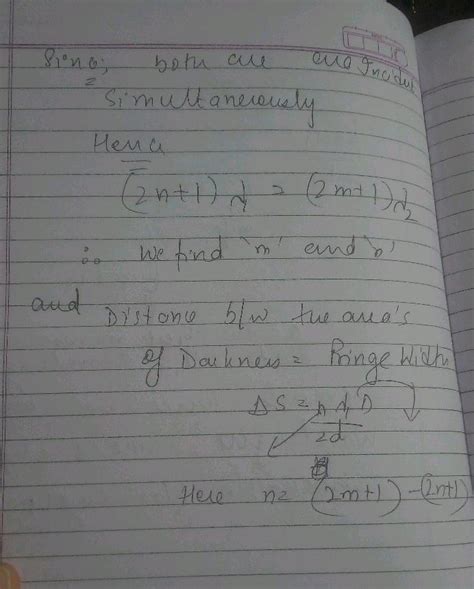 Since, both are are Incident
Simultaneously
Hence
(2n+1) λ₁ = (2m+1) λ₂
∴ We find 'm' and 'n'
and Distance b/w the area's
of Darkness = Fringe Width
ΔS = n λ₁ D
2d
Here n = (2m+1) - (2n+1)